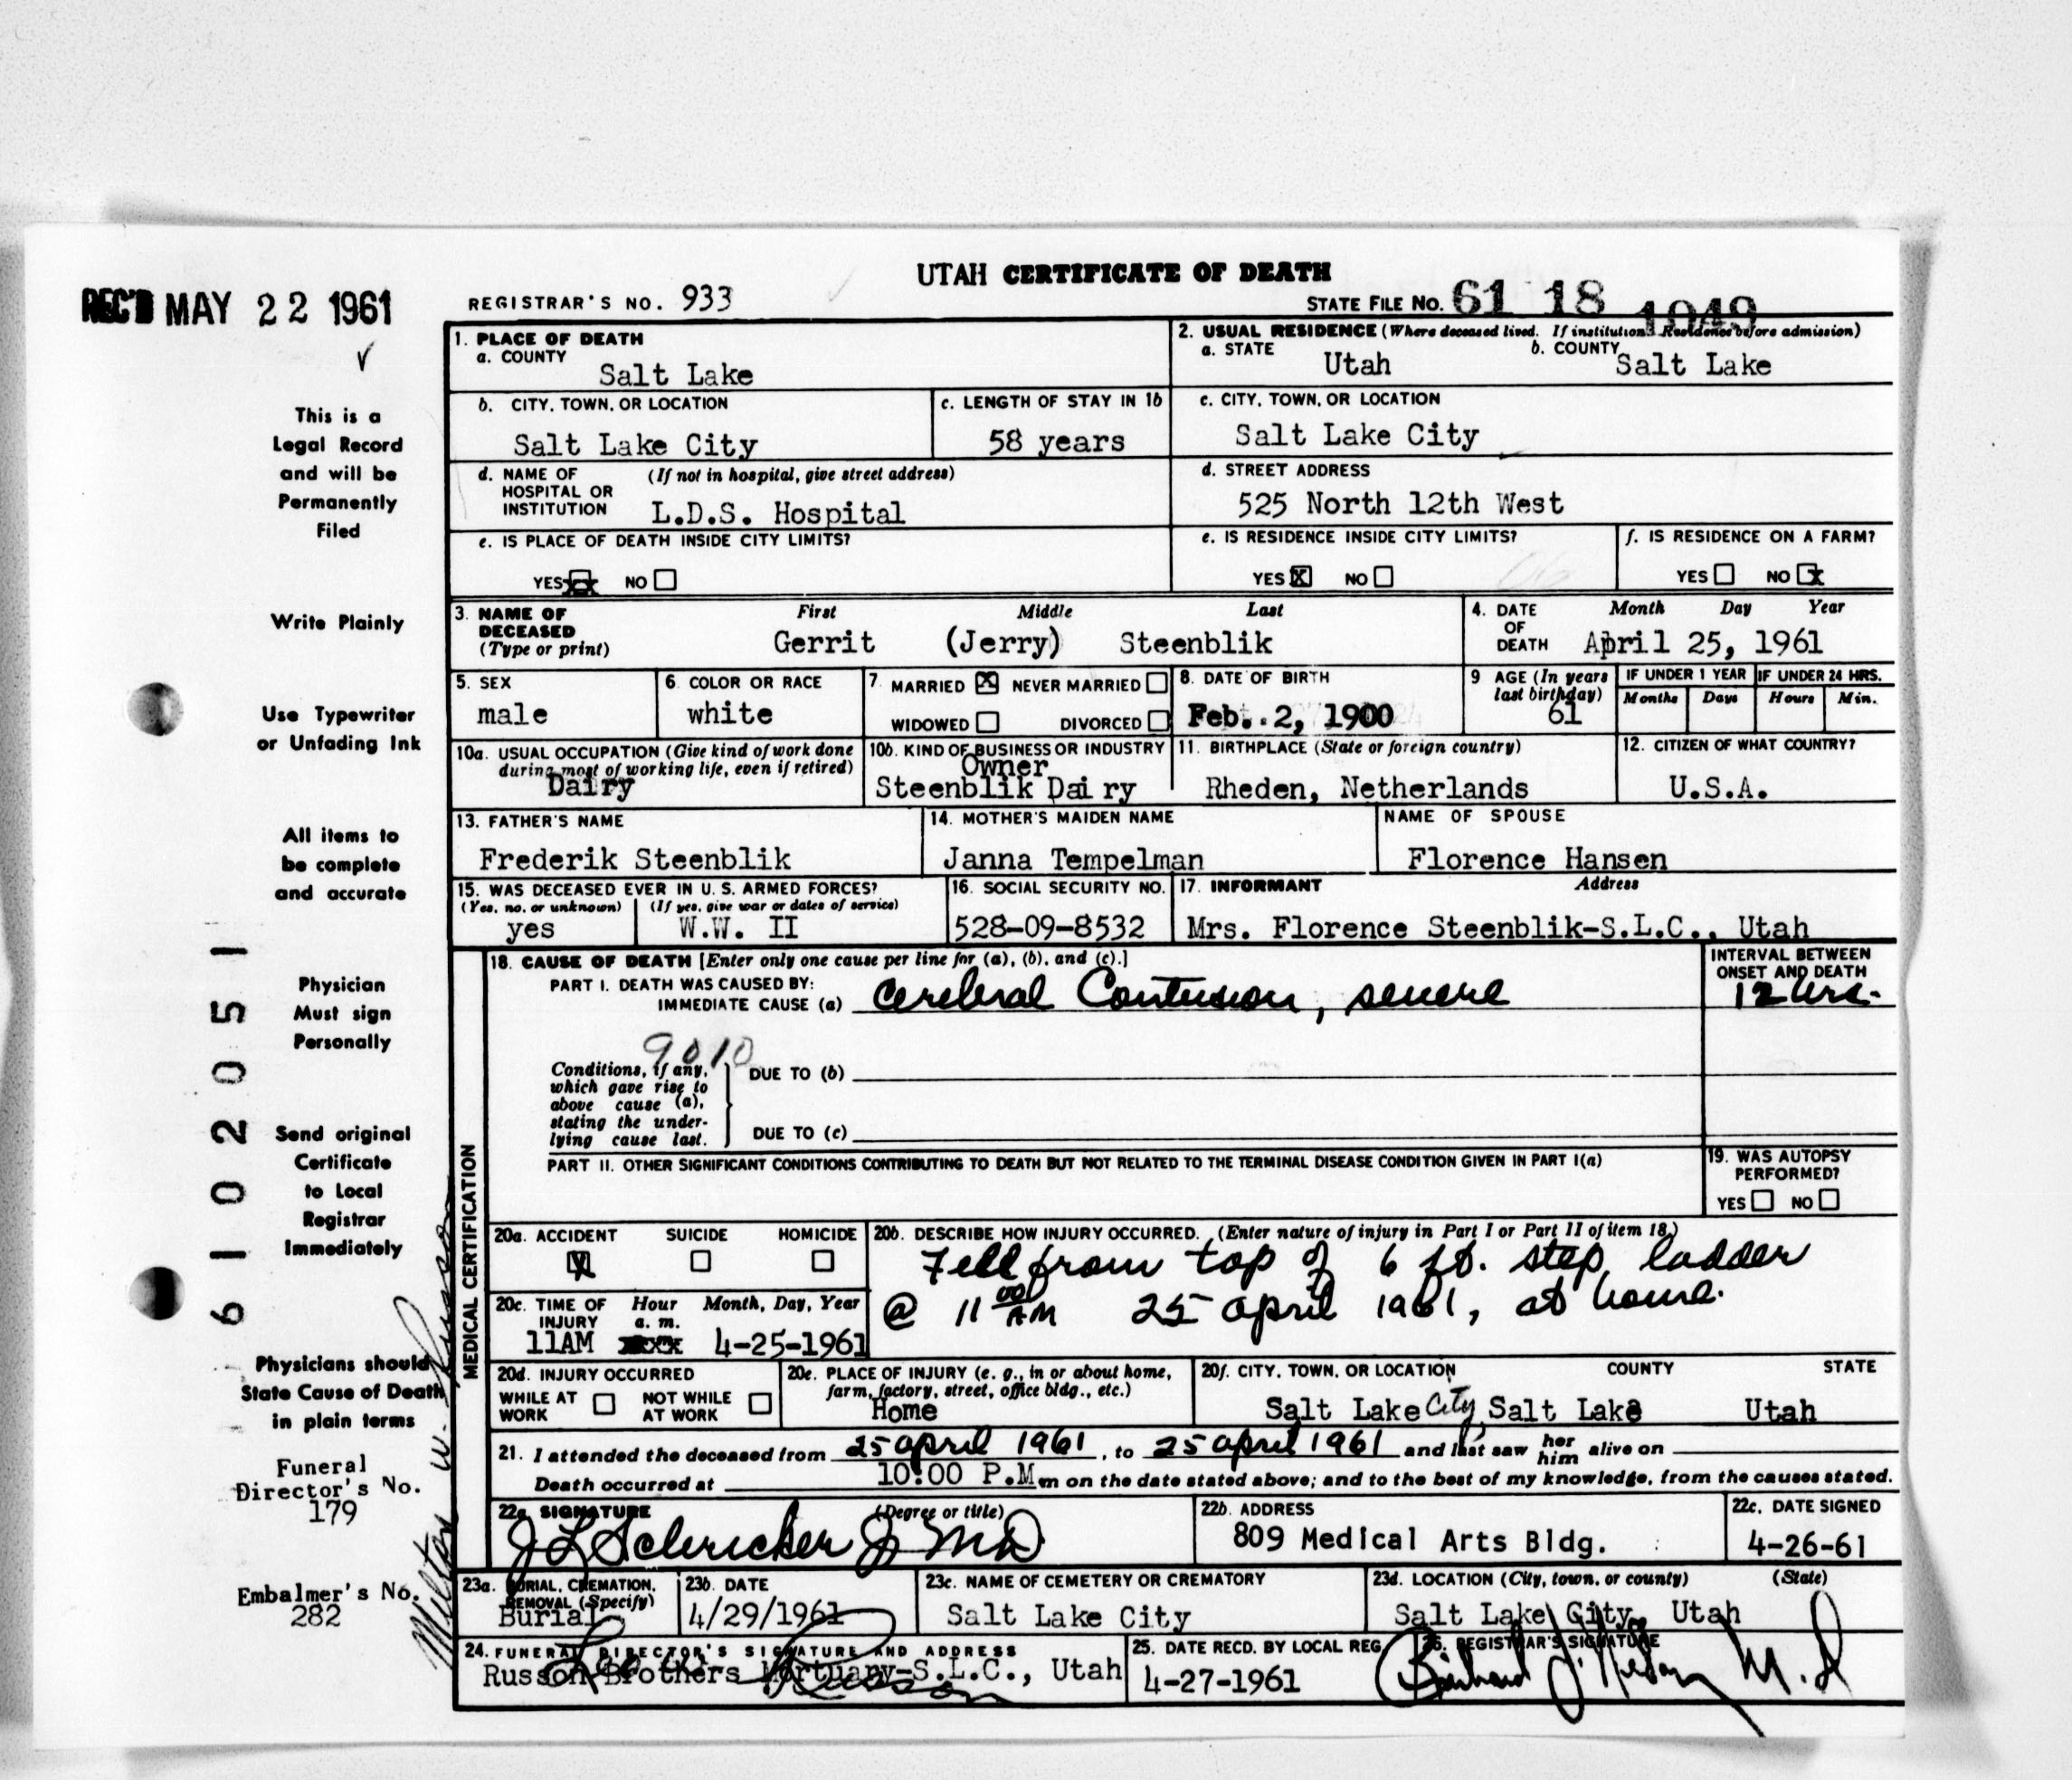 UTAH CERTIFICATE OF DEATH
REC'D MAY 22 1961
REGISTRAR'S NO. 933
STATE FILE NO. 61 18 1049
1. PLACE OF DEATH
a. COUNTY
Salt Lake
2. USUAL RESIDENCE (Where deceased lived. If institution: Residence before admission)
a. STATE Utah b. COUNTY Salt Lake
b. CITY, TOWN, OR LOCATION
Salt Lake City
c. LENGTH OF STAY IN 1b
58 years
c. CITY, TOWN, OR LOCATION
Salt Lake City
d. NAME OF HOSPITAL OR INSTITUTION (If not in hospital, give street address)
L.D.S. Hospital
d. STREET ADDRESS
525 North 12th West
e. IS PLACE OF DEATH INSIDE CITY LIMITS?
YES xx NO
e. IS RESIDENCE INSIDE CITY LIMITS?
YES X NO
f. IS RESIDENCE ON A FARM?
YES NO x
3. NAME OF DECEASED (Type or print)
First Middle Last
Gerrit (Jerry) Steenblik
4. DATE OF DEATH
Month Day Year
April 25, 1961
5. SEX
male
6. COLOR OR RACE
white
7. MARRIED X NEVER MARRIED
WIDOWED DIVORCED
8. DATE OF BIRTH
Feb. 2, 1900
9 AGE (In years last birthday)
61
IF UNDER 1 YEAR
Months Days
IF UNDER 24 HRS.
Hours Min.
10a. USUAL OCCUPATION (Give kind of work done during most of working life, even if retired)
Dairy
10b. KIND OF BUSINESS OR INDUSTRY
Owner
Steenblik Dairy
11. BIRTHPLACE (State or foreign country)
Rheden, Netherlands
12. CITIZEN OF WHAT COUNTRY?
U.S.A.
13. FATHER'S NAME
Frederik Steenblik
14. MOTHER'S MAIDEN NAME
Janna Tempelman
NAME OF SPOUSE
Florence Hansen
15. WAS DECEASED EVER IN U. S. ARMED FORCES?
(Yes, no, or unknown) (If yes, give war or dates of service)
yes W.W. II
16. SOCIAL SECURITY NO.
528-09-8532
17. INFORMANT Address
Mrs. Florence Steenblik-S.L.C., Utah
MEDICAL CERTIFICATION
18. CAUSE OF DEATH [Enter only one cause per line for (a), (b), and (c).]
PART I. DEATH WAS CAUSED BY:
IMMEDIATE CAUSE (a) Cerebral Contusion, severe
INTERVAL BETWEEN ONSET AND DEATH
12 hrs.
9010
Conditions, if any, which gave rise to above cause (a), stating the underlying cause last.
DUE TO (b)
DUE TO (c)
PART II. OTHER SIGNIFICANT CONDITIONS CONTRIBUTING TO DEATH BUT NOT RELATED TO THE TERMINAL DISEASE CONDITION GIVEN IN PART I(a)
19. WAS AUTOPSY PERFORMED?
YES NO
20a. ACCIDENT SUICIDE HOMICIDE
X
20b. DESCRIBE HOW INJURY OCCURRED. (Enter nature of injury in Part I or Part II of item 18.)
Fell from top of 6 ft. step ladder
@ 11 00 AM 25 april 1961, at home.
20c. TIME OF INJURY Hour a. m. Month, Day, Year
11AM 4-25-1961
20d. INJURY OCCURRED
WHILE AT WORK NOT WHILE AT WORK
20e. PLACE OF INJURY (e. g., in or about home, farm, factory, street, office bldg., etc.)
Home
20f. CITY, TOWN, OR LOCATION COUNTY STATE
Salt Lake City, Salt Lake Utah
21. I attended the deceased from 25 april 1961, to 25 april 1961 and last saw her him alive on
Death occurred at 10:00 P.M m on the date stated above; and to the best of my knowledge, from the causes stated.
22a. SIGNATURE (Degree or title)
J L Schricker Jr MD
22b. ADDRESS
809 Medical Arts Bldg.
22c. DATE SIGNED
4-26-61
23a. BURIAL, CREMATION, REMOVAL (Specify)
Burial
23b. DATE
4/29/1961
23c. NAME OF CEMETERY OR CREMATORY
Salt Lake City
23d. LOCATION (City, town, or county) (State)
Salt Lake City, Utah
24. FUNERAL DIRECTOR'S SIGNATURE AND ADDRESS
Russon Brothers Mortuary-S.L.C., Utah
25. DATE RECD. BY LOCAL REG.
4-27-1961
26. REGISTRAR'S SIGNATURE
M.D
This is a
Legal Record
and will be
Permanently
Filed
Write Plainly
Use Typewriter
or Unfading Ink
All items to
be complete
and accurate
Physician
Must sign
Personally
Send original
Certificate
to Local
Registrar
Immediately
Physicians should
State Cause of Death
in plain terms
Funeral
Director's No.
179
Embalmer's No.
282
61 02051
Milton W. Russon